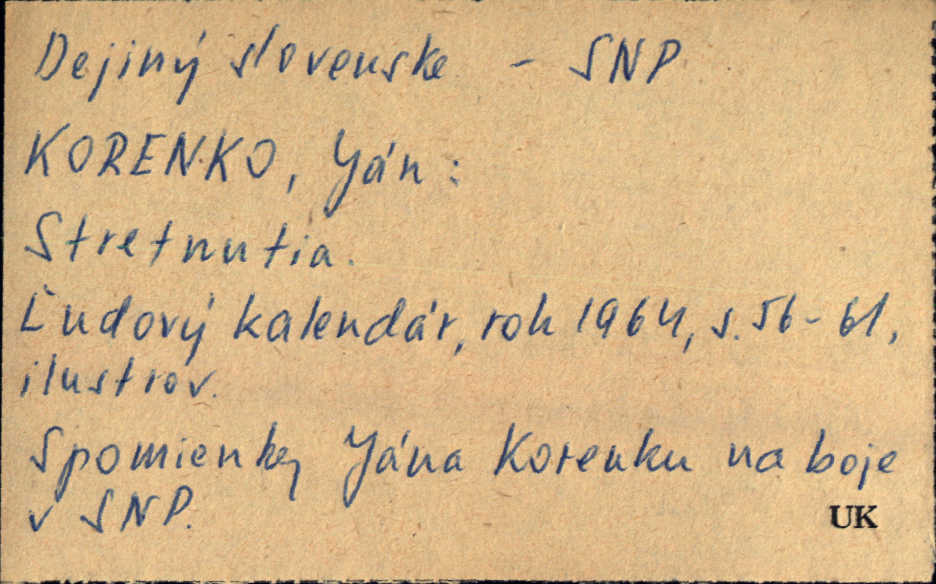 Dejiný slovenske - SNP
KORENKO, Ján:
Stretnutia.
Ľudový kalendár, rok 1964, s. 56-61,
ilustrov.
Spomienky Jána Korenku na boje
v SNP.
UK